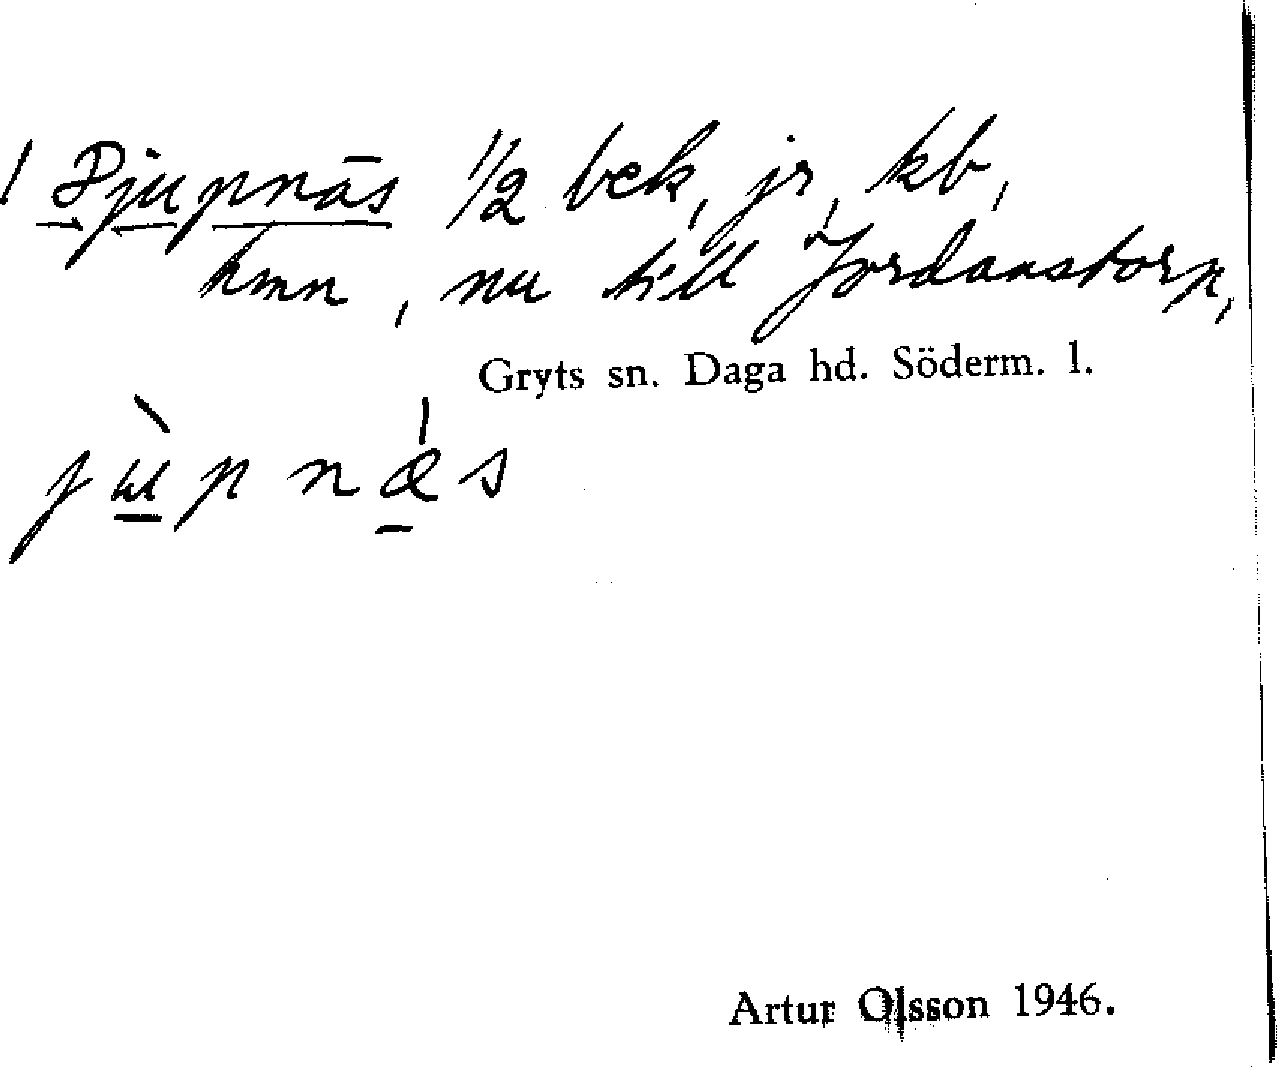 / Djupnäs 1/2 bek, jr, kb,
hmn, nu till Jordanstorp,
Gryts sn. Daga hd. Söderm. l.
jùpnǽs
Artur Olsson 1946.